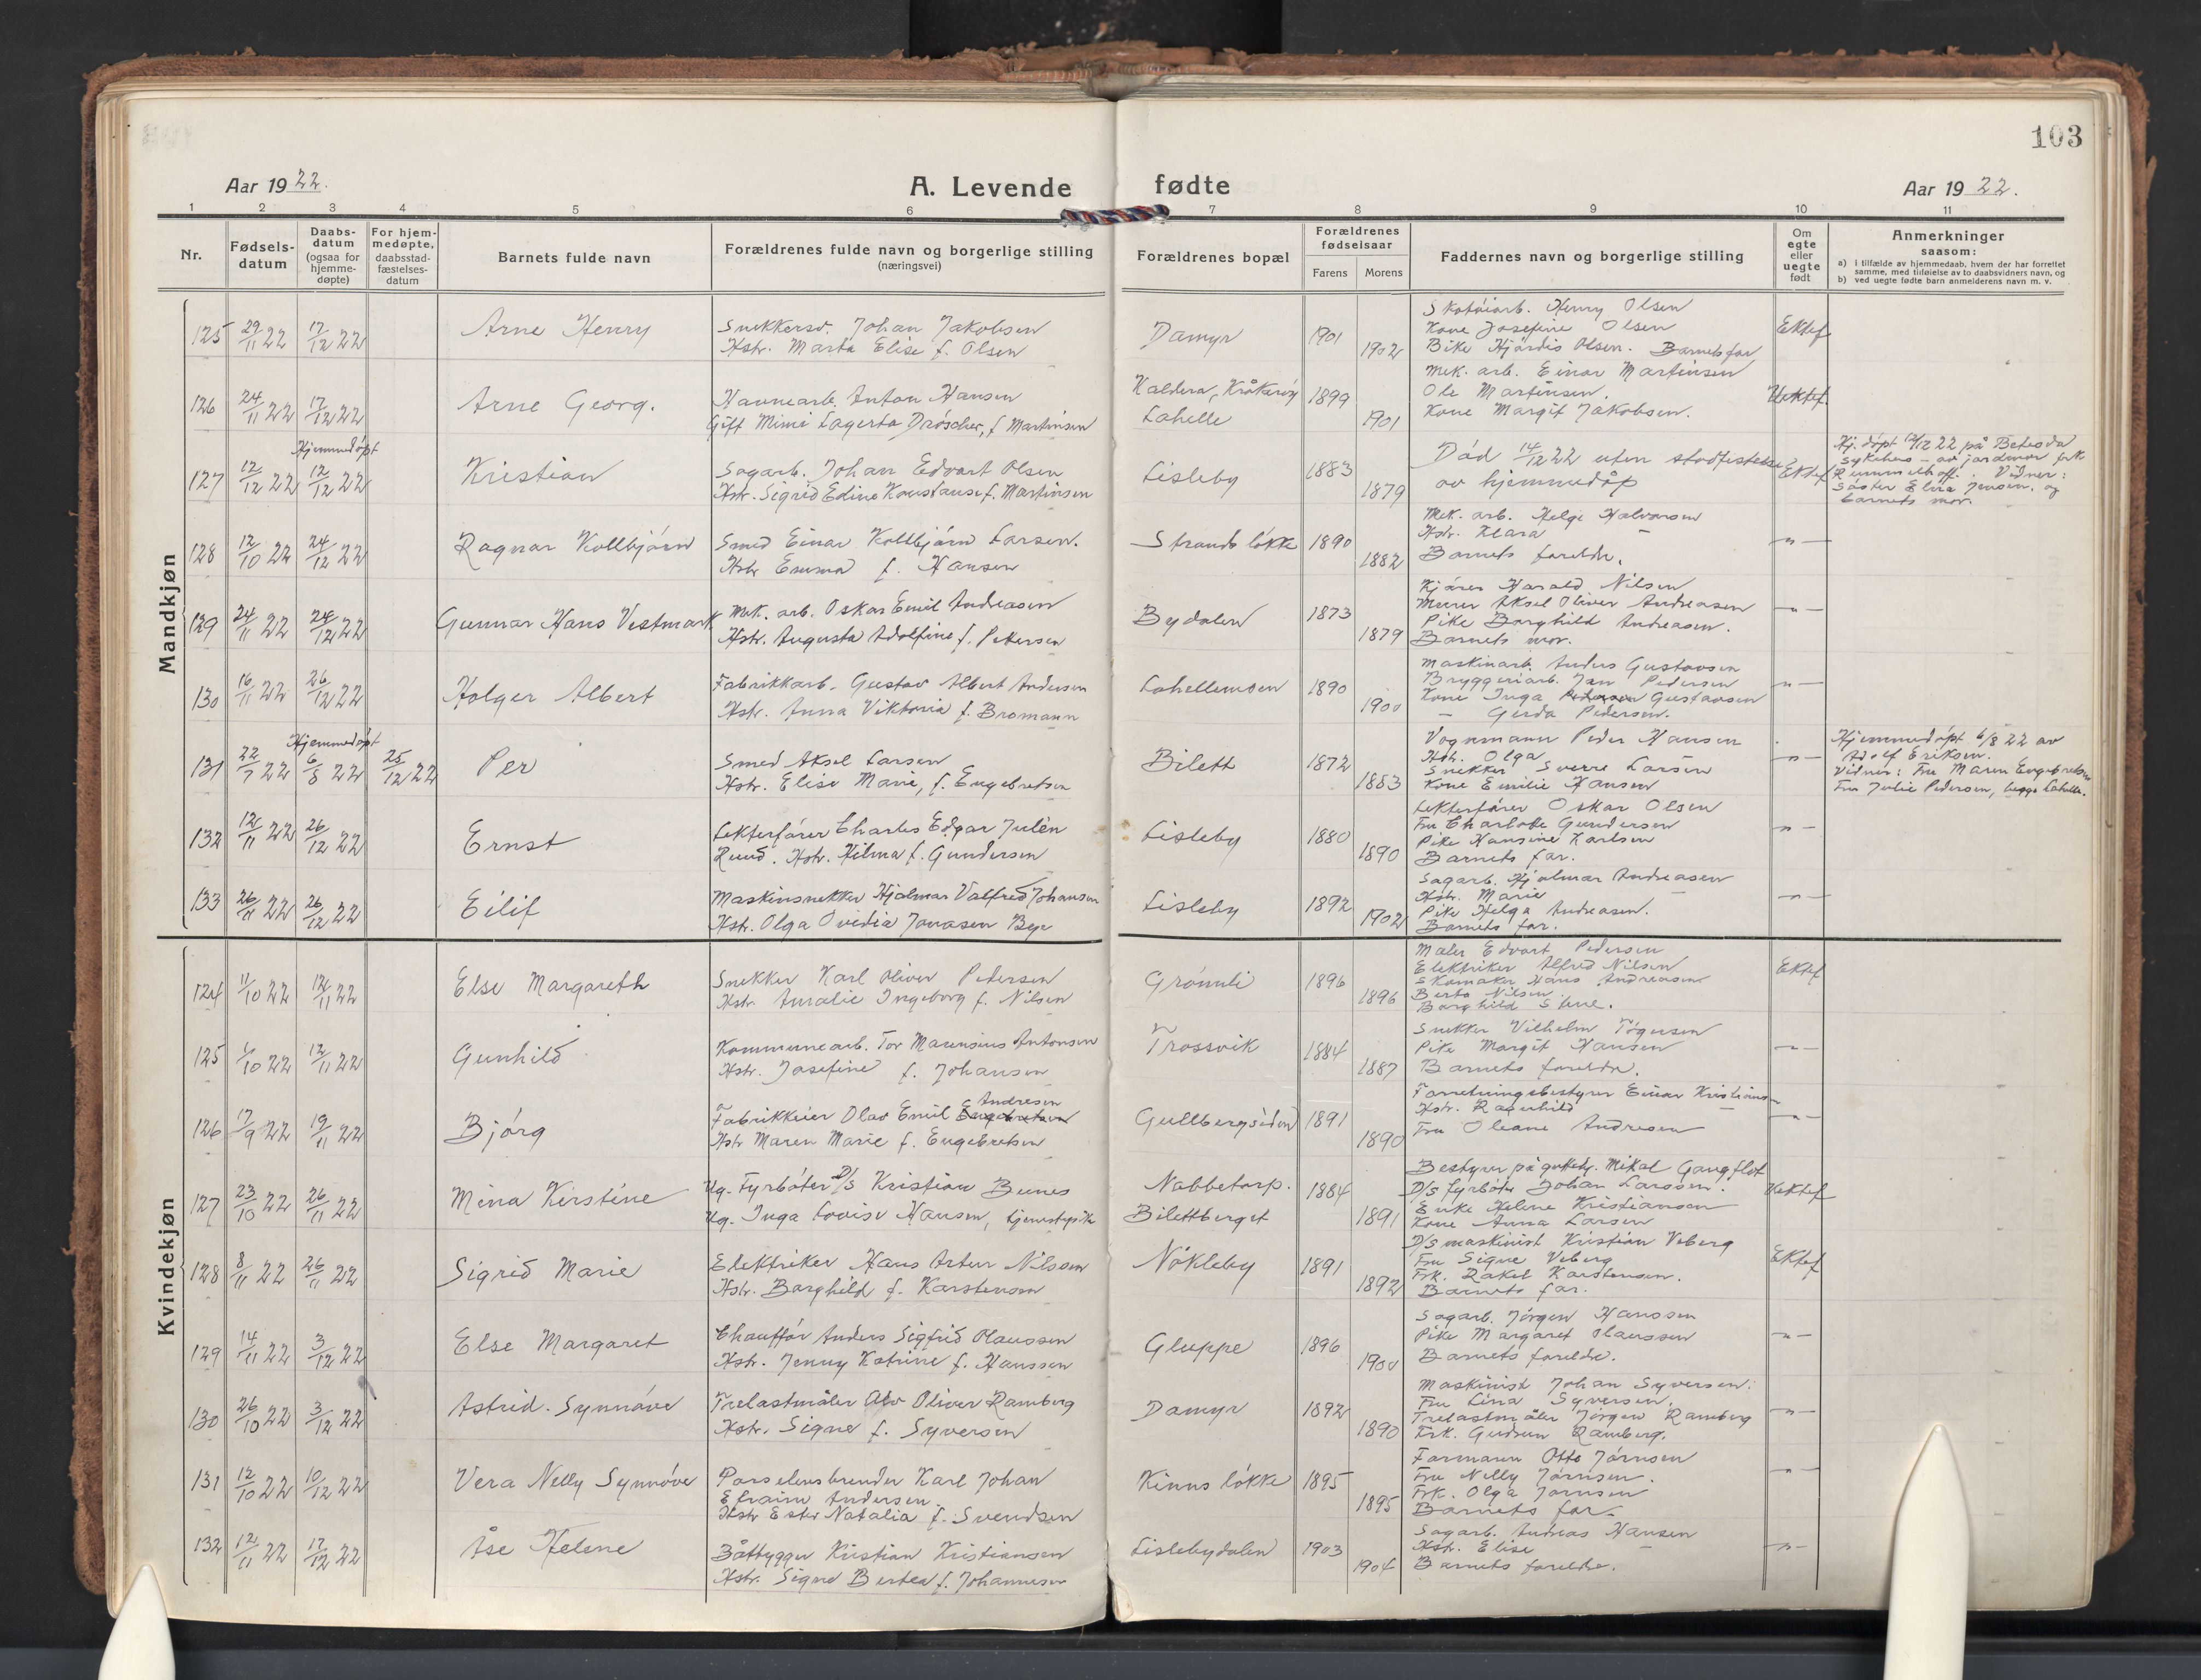 103
Aar 1922.
A. Levende fødte
Aar 1922.
1 2 3 4 5 6 7 8 9 10 11
Nr.
Fødsels-
datum
Daabs-
datum
(ogsaa for
hjemme-
døpte)
For hjem-
medøpte,
daabsstad-
fæstelses-
datum
Barnets fulde navn
Forældrenes fulde navn og borgerlige stilling
(næringsvei)
Forældrenes bopæl
Forældrenes
fødselsaar
Farens
Morens
Faddernes navn og borgerlige stilling
Om
egte
eller
uegte
født
Anmerkninger
saasom:
a) i tilfælde av hjemmedaab, hvem der har forrettet
samme, med tilføielse av to daabsvidners navn, og
b) ved uegte fødte barn anmelderens navn m. v.
Mandkjøn
125 29/11 22 17/12 22 Arne Henry
Snekkersv. Johan Jakobsen
Hstr. Marta Elise f. Olsen
Damyr 1901 1902
Skotøiarb. Henry Olsen
Kone Josefine Olsen
Pike Hjørdis Olsen. Barnets far
Ektef
126 24/11 22 17/12 22 Arne Georg.
Havnearb. Anton Hansen
Gift Mimi Lagerta Dröscher, f Martinsen
Kaldera, Kråkerøy
Lahelle
1899 1901
Mek. arb. Einar Martinsen
Ole Martinsen.
Kone Margit Jakobsen.
Uektef.
Hjemmedøpt
127 12/12 22 12/12 22 Kristian
Sagarb. Johan Edvart Olsen
Hstr. Sigrid Edine Konstanse f. Martinsen
Lisleby 1883 1879
Død 14/12 22 uten stadfestelse
av hjemmedåp
Ektef
Hj. døpt 12/12 22 på Betesda
sykehus - av jordmor frk
Rummelhoff. Vidner:
Søster Elna Jensen. og
barnets mor.
128 12/10 22 24/12 22 Ragnar Kollbjørn
Smed Einar Kollbjørn Larsen.
Hstr Emma f. Hansen
Strandsløkke 1890 1882
Mek. arb. Helge Halvorsen
Hstr. Klara —
Barnets foreldre.
— " —
129 24/11 22 24/12 22 Gunnar Hans Vestmark
Mek. arb. Oskar Emil Andreasen
Hstr. Augusta Adolfine f. Pettersen
Bydalen 1873 1879
Kjører Harald Nilsen
Murer Aksel Oliver Andreasen
Pike Borghild Andreasen.
Barnets mor.
— " —
130 16/11 22 26/12 22 Holger Albert
Fabrikkarb. Gustav Albert Andersen
Hstr. Anna Viktoria f. Bromann
Lahellemoen 1890 1900
Maskinarb. Anders Gustavsen
Bryggeriarb. Jan Pedersen
Kone Inga Pedersen Gustavsen
— Gerda Pedersen.
— " —
Hjemmedøpt
131 22/7 22 6/8 22 25/12 22 Per
Smed Aksel Larsen
Hstr. Elise Marie, f. Engebretsen
Bilett 1872 1883
Vognmann Peder Hansen
Hstr. Olga —
Snekker Sverre Larsen
Kone Emilie Hansen
— " —
Hjemmedøpt 6/8 22 av
Adolf Eriksen.
Vidner: Fru Maren Engebretsen
Fru Julie Pedersen, begge Lahelle.
132 12/11 22 26/12 22 Ernst
Lekterfører Charles Edgar Julèn
Ruud. Hstr. Hilma f. Gundersen
Lisleby 1880 1890
Lekterfører Oskar Olsen
Fru Charlotte Gundersen
Pike Hansine Karlsen
Barnets far.
— " —
133 26/11 22 26/12 22 Eilif
Maskinsnekker Hjalmar Valfred Johansen
Hstr. Olga Ovidia Jonasen Bye
Lisleby 1892 1902
Sagarb. Hjalmar Andreasen
Hstr. Marie —
Pike Helga Andreasen.
Barnets far.
— " —
Kvindekjøn
124 11/10 22 12/11 22 Else Margareth
Snekker Karl Oliver Petersen
Hstr. Amalie Ingeborg f. Nilsen
Grømli 1896 1896
Maler Edvart Pedersen
Elektriker Alfred Nilsen
Skomaker Hans Andreasen
Berta Nilsen.
Borghild
Ektef
125 1/10 22 12/11 22 Gunhild
Kommunearb. Tor Marensius Antonsen
Hstr. Josefine f. Johansen
Trosvik 1884 1887
Snekker Vilhelm Tøgersen
Pike Margit Hansen
Barnets foreldre.
— " —
126 17/9 22 19/11 22 Bjørg
Andresen
Fabrikkeier Olav Emil Engebretsen
Hstr Maren Marie f. Engebretsen
Gullbergsiden 1891 1890
Forretningsbestyrer Einar Kristiansen
Hstr. Ragnhild —
Fru Oleane Andresen
— " —
127 23/10 22 26/11 22 Mina Kirstine
Ug. Fyrbøter D/S Kristian Bunes
Ug. Inga Lovise Hansen, tjenestepike
Nabbetorp.
Bilettberget
1884 1891
Bestyrer på Mikal Gangflot
D/S fyrbøter Johan Larssen.
Enke Helene Kristiansen
Kone Anna Larsen
Uektef
128 8/11 22 26/11 22 Sigrid Marie
Elektriker Hans Artur Nilssen
Hstr. Borghild f. Karstensen
Nøkleby 1891 1892
D/S maskinist Kristian Veberg
Fru Signe Veberg
Frk. Rakel Karstensen.
Barnets far.
Ektef
129 14/11 22 3/12 22 Else Margaret
Chauffør Anders Sigfrid Olaussen
Hstr. Jenny Katrine f. Hanssen
Gluppe 1896 1900
Sagarb. Jørgen Hanssen
Pike Margaret Olaussen
Barnets foreldre.
— " —
130 26/10 22 3/12 22 Astrid. Synnøve
Trelastmåler Alv Oliver Ramberg
Hstr. Signe f. Syversen
Damyr 1892 1890
Maskinist Johan Syversen.
Fru Lina Syversen.
Trelastmåler Jørgen Ramberg
Frk. Gudrun Ramberg.
— " —
131 12/10 22 10/12 22 Vera Nelly Synnøve
Porselensbrender Karl Johan
Efraim Andersen.
Hstr Ester Natalia f. Svendsen
Kinns løkke 1895 1895
Formann Otto Jørnsen
Fru Nelly Jørnsen.
Frk. Olga Jørnsen
Barnets far.
— " —
132 12/11 22 17/12 22 Åse Helene
Båtbygger Kristian Kristiansen
Hstr. Signe Bertea f. Johannesen
Lislebydalen 1903 1904
Sagarb. Andreas Hansen
Hstr. Elise —
Barnets foreldre.
— " —